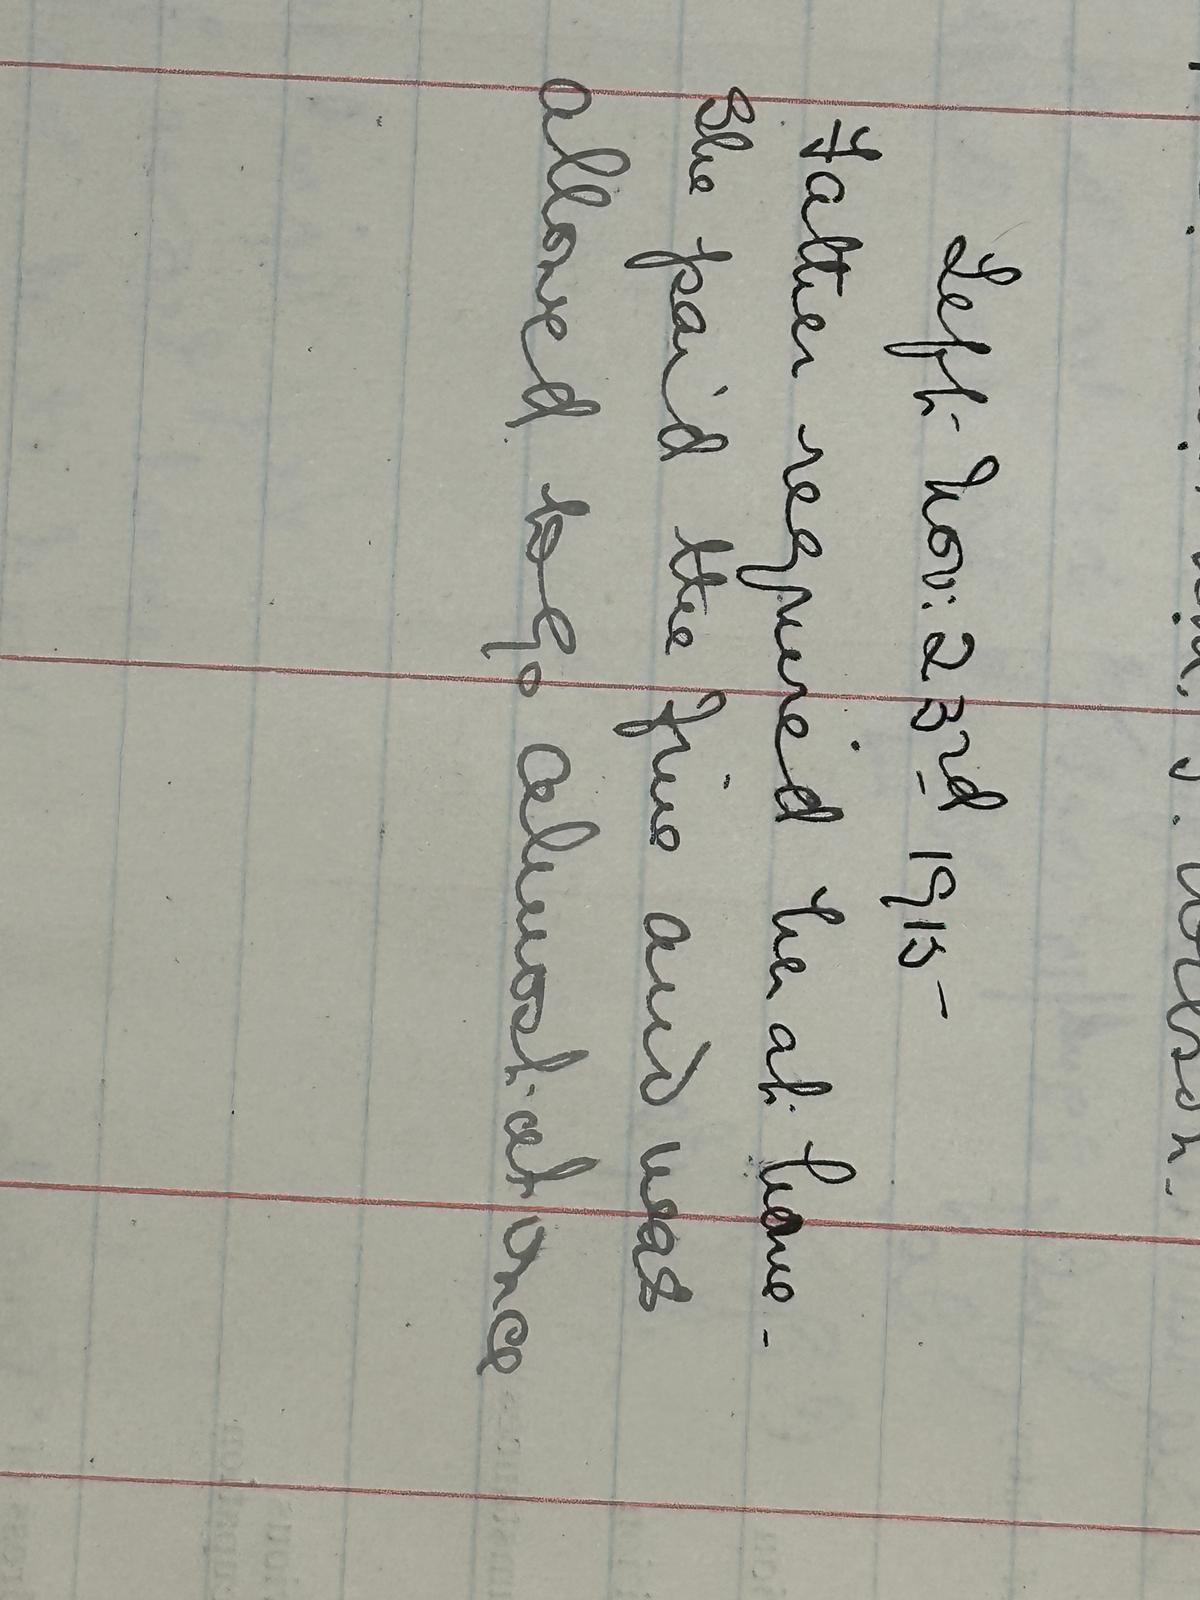 Left Nov: 23rd 1915 -
Father required her at home -
She paid the fine and was
allowed to go almost at once